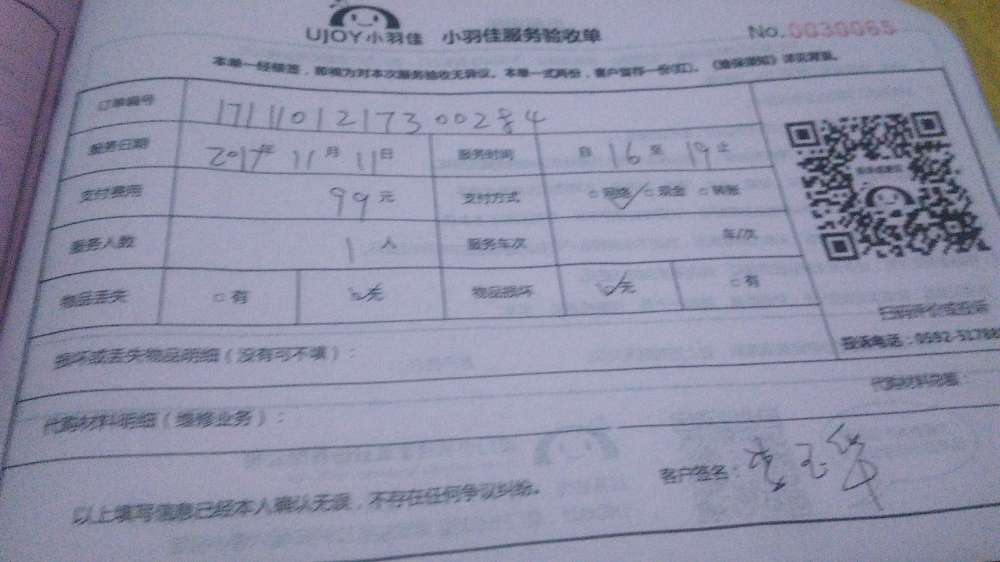 UJOY小羽佳 小羽佳服务验收单 No.0030065
本单一经签签，即视为对本次服务验收无异议。本单一式两份，客户留存一份(红)。《维保须知》详见背面。
订单编号 17111012173 00284
服务日期 2017年 11月 11日 服务时间 自 16 至 19 止
支付费用 99 元 支付方式 □网络 □现金 □转账
服务人数 1 人 服务车次 车/次
物品丢失 □有 □无 物品损坏 □无 □有
扫码评价或投诉
投诉电话：0592-51788
损坏或丢失物品明细（没有可不填）：
代购材料明细（维修业务）： 代购材料总额：
以上填写信息已经本人确认无误，不存在任何争议纠纷。 客户签名：